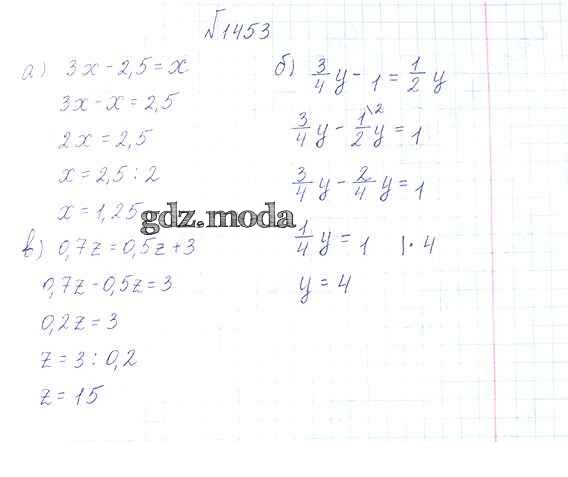 №1453
а) 3x - 2,5 = x
3x - x = 2,5
2x = 2,5
x = 2,5 : 2
x = 1,25
gdz.moda
б) 3/4 y - 1 = 1/2 y
3/4 y - 1\2/2 y = 1
3/4 y - 2/4 y = 1
1/4 y = 1 |· 4
y = 4
в) 0,7z = 0,5z + 3
0,7z - 0,5z = 3
0,2z = 3
z = 3 : 0,2
z = 15